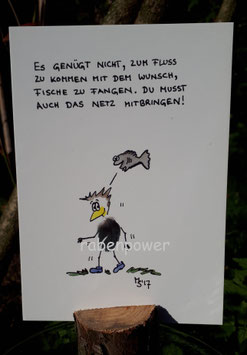 ES GENÜGT NICHT, ZUM FLUSS
ZU KOMMEN MIT DEM WUNSCH,
FISCHE ZU FANGEN. DU MUSST
AUCH DAS NETZ MITBRINGEN!
rabenpower
MS'17